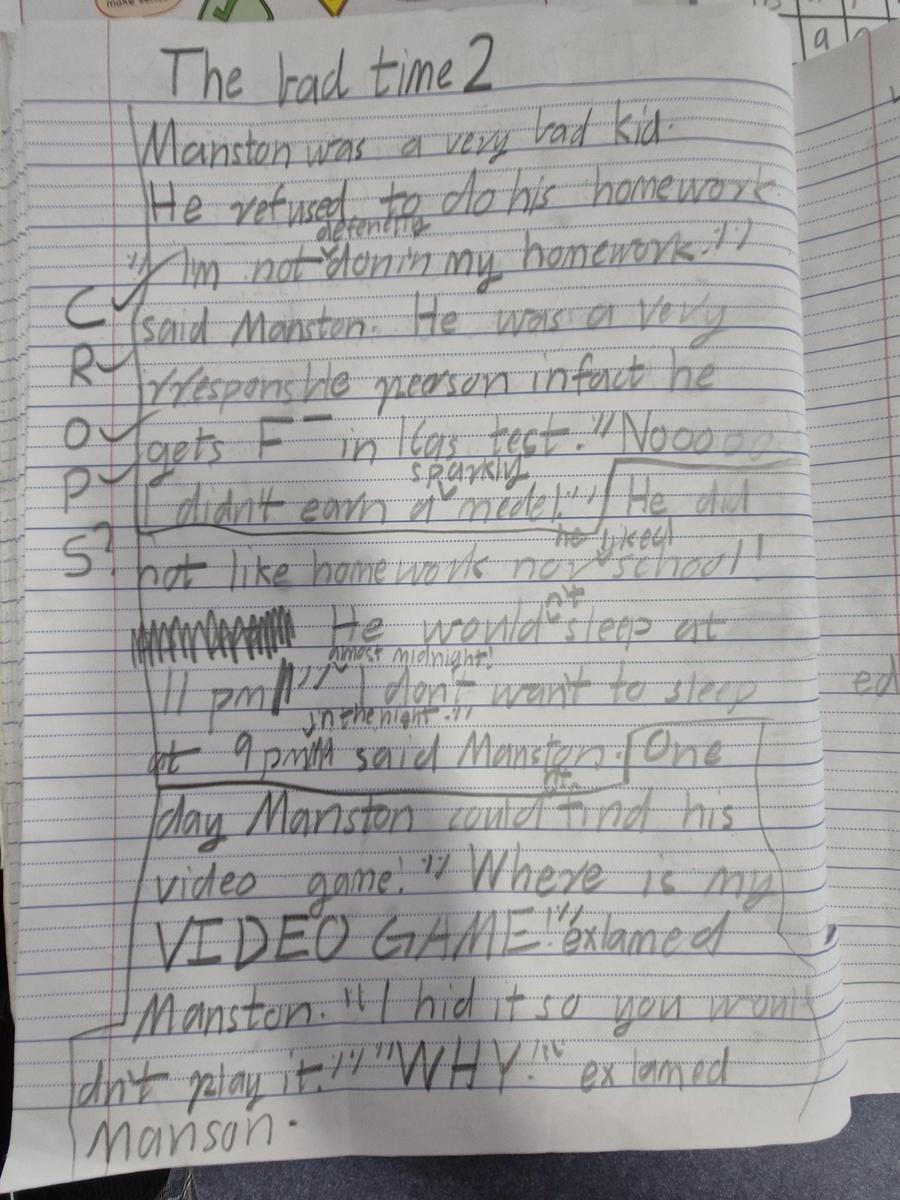 make sense
a
The bad time 2
Manston was a very bad kid.
He refused to do his homework.
"I'm not donin my homework!"
C
said Manston. He was a very
R
rresponsble person infact he
O
gets F- in test. "Nooooo
P
sparkly
I didn't earn a medel!" He did
he liked
S?
not like homework nor school!
n't
He would sleep at
almost midnight!
11 pm "I don't want to sleep
in the night."
at 9 pm said Manston. One
n't
day Manston could find his
video game! "Where is my
VIDEO GAME!" exlamed
Manston. "I hid it so you woul
dn't play it!" "WHY!" exlamed
Manson.
ed